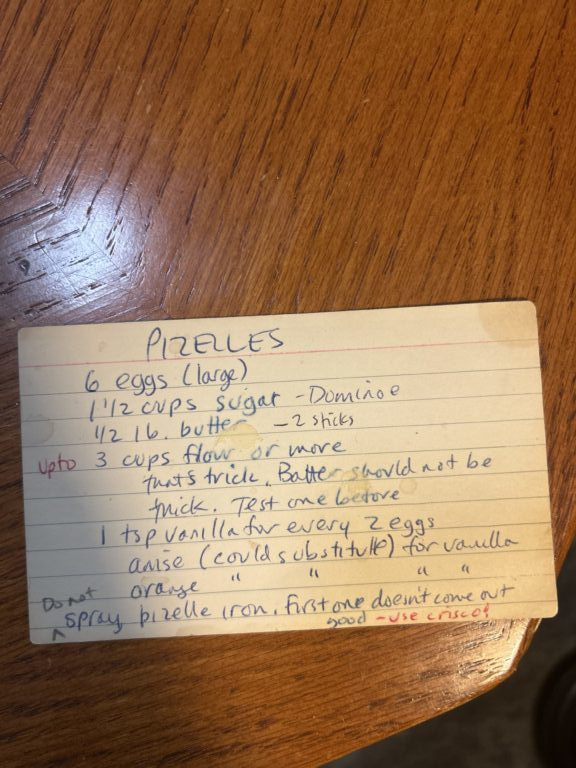 PIZELLES
6 eggs (large)
1 1/2 cups sugar - Dominoe
1/2 lb. butter - 2 sticks
upto 3 cups flour or more
that's trick. Batter should not be
thick. Test one before
1 tsp vanilla for every 2 eggs
anise (could substitute) for vanilla
orange " " " "
Do not
^ spray pizelle iron. First one doesn't come out
good - use crisco!